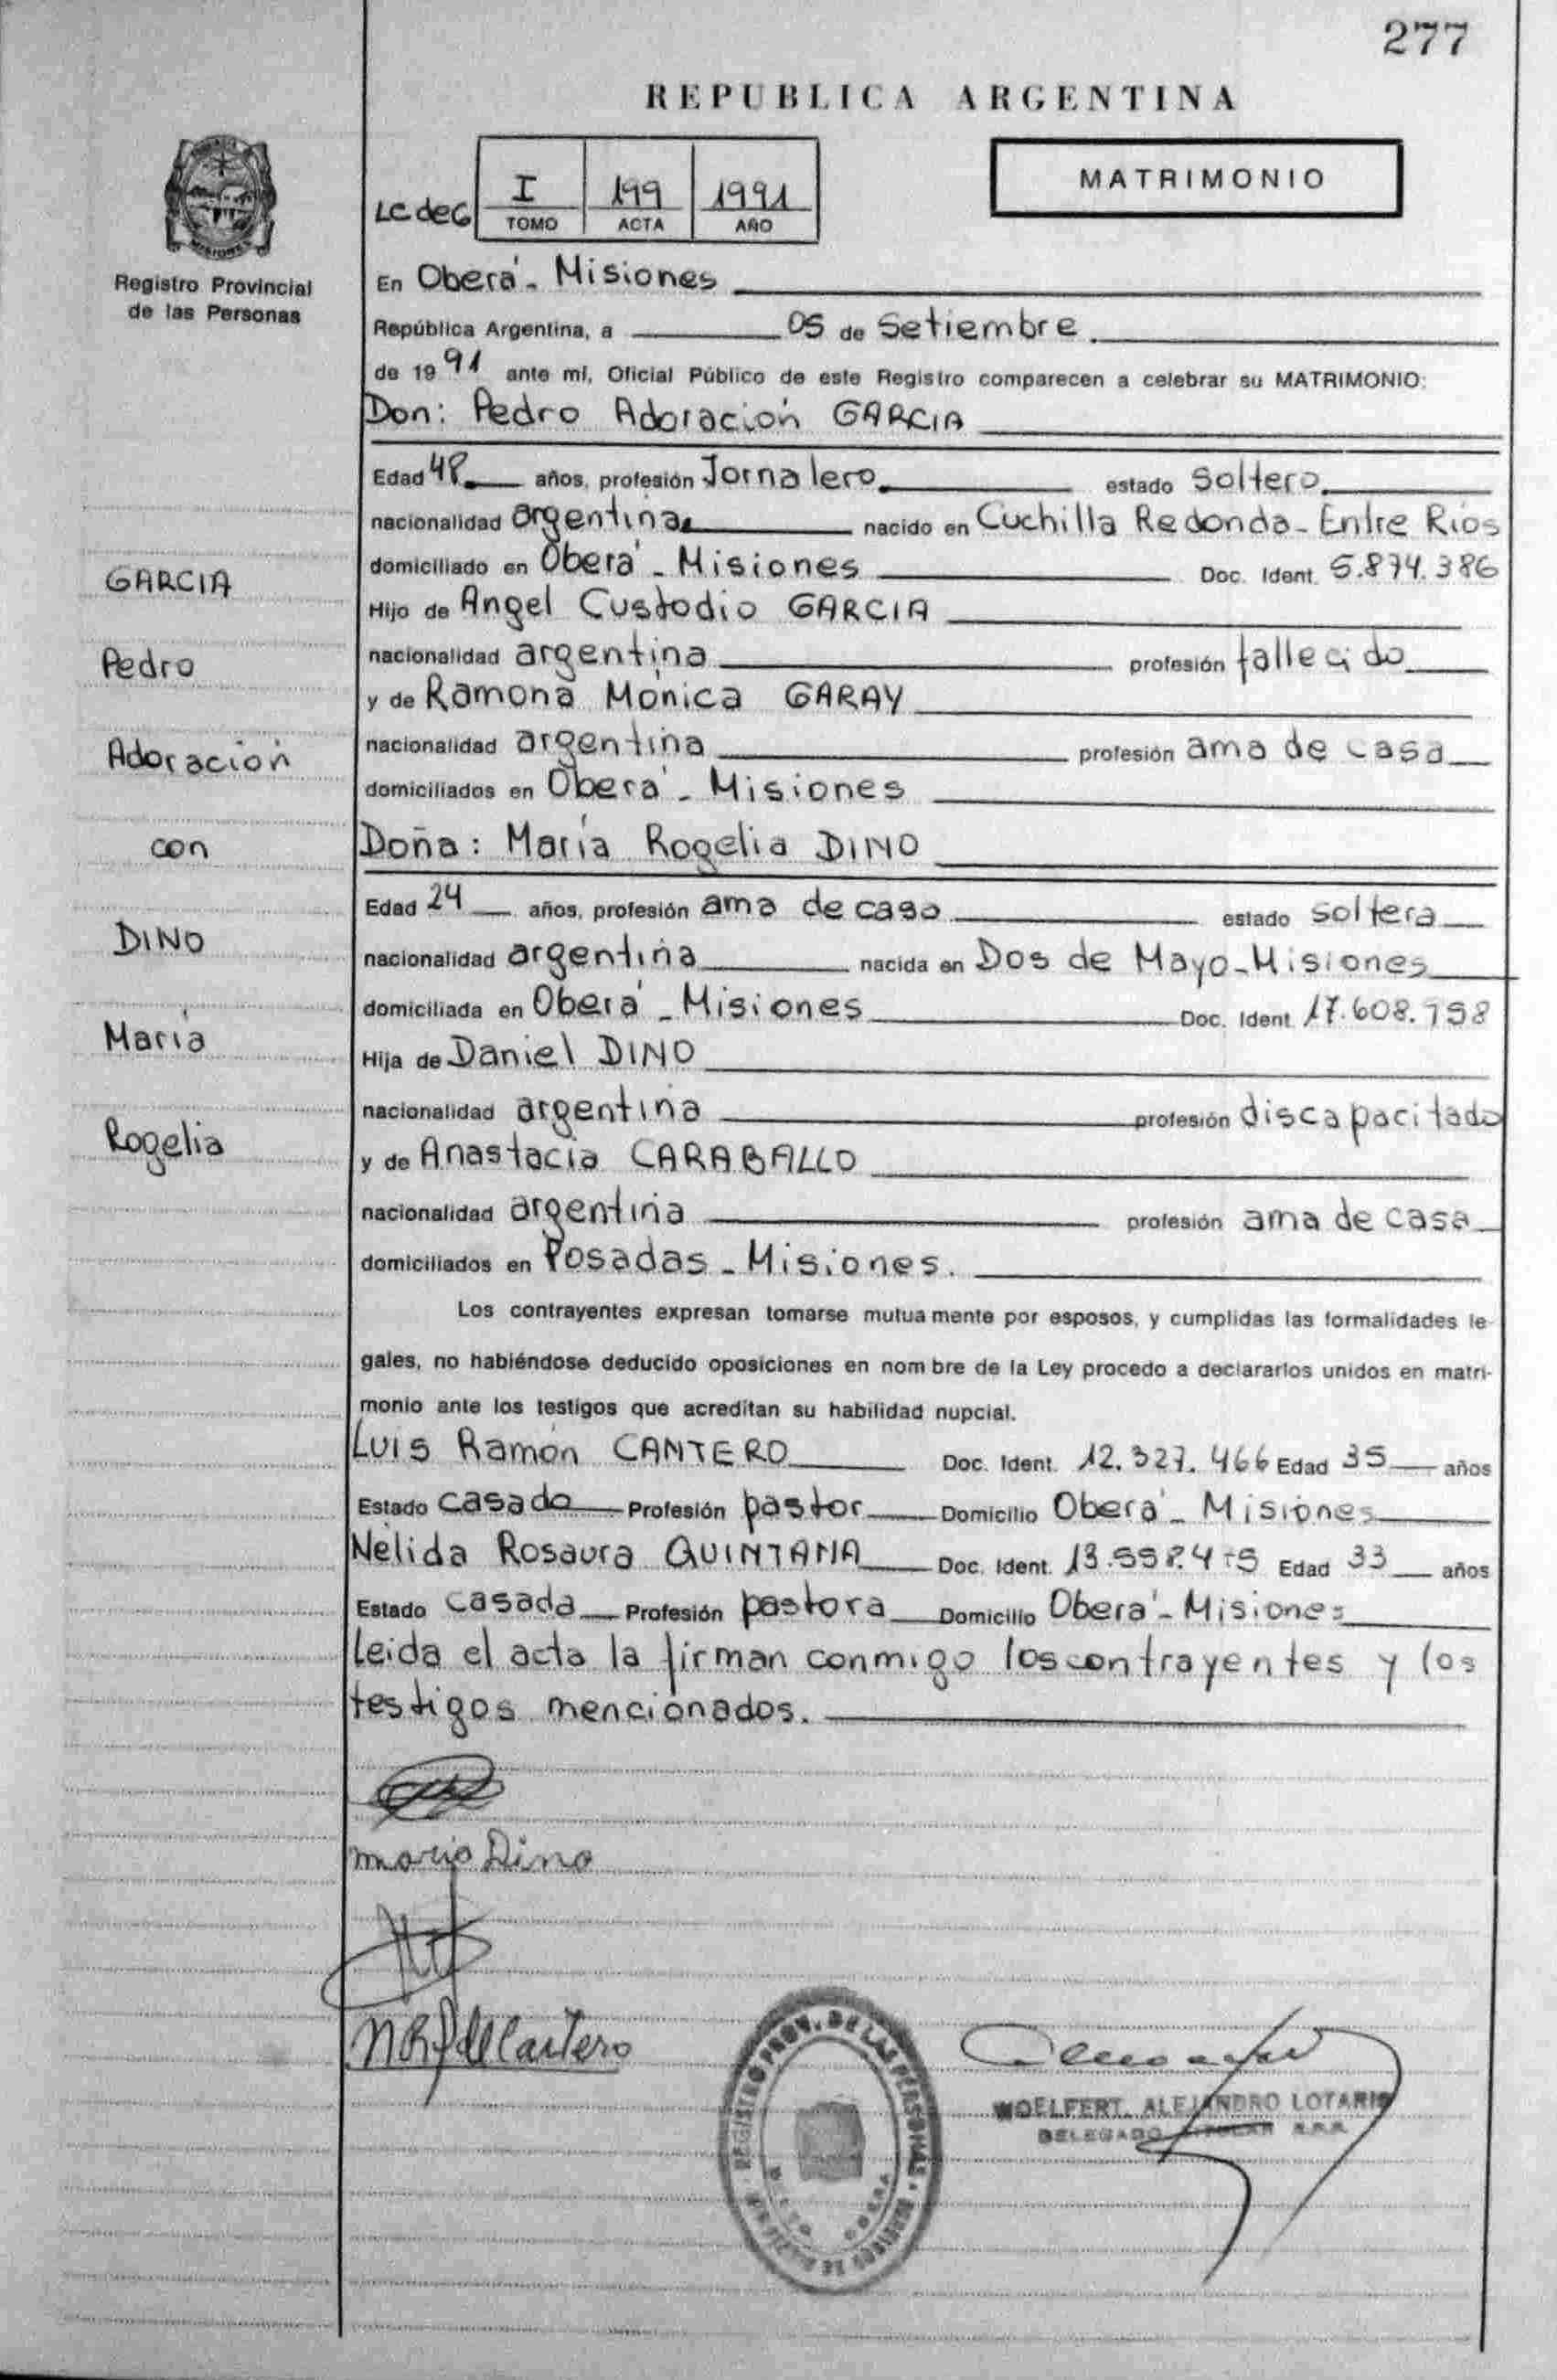 277
REPUBLICA ARGENTINA
MATRIMONIO
Lc de G I 199 1991
TOMO ACTA AÑO
MISIONES
Registro Provincial
de las Personas
En Oberá - Misiones
República Argentina, a 05 de Setiembre
de 1991 ante mí, Oficial Público de este Registro comparecen a celebrar su MATRIMONIO:
Don: Pedro Adoración GARCIA
Edad 48 años, profesión Jornalero estado soltero
nacionalidad argentina nacido en Cuchilla Redonda - Entre Ríos
domiciliado en Oberá - Misiones Doc. Ident. 5.874.386
Hijo de Angel Custodio GARCIA
nacionalidad argentina profesión fallecido
y de Ramona Mónica GARAY
nacionalidad argentina profesión ama de casa
domiciliados en Oberá - Misiones
Doña: María Rogelia DINO
Edad 24 años, profesión ama de casa estado soltera
nacionalidad argentina nacida en Dos de Mayo - Misiones
domiciliada en Oberá - Misiones Doc. Ident.
Hija de Daniel DINO
nacionalidad argentina profesión discapacitado
y de Anastacia CARABALLO
nacionalidad argentina profesión ama de casa
domiciliados en Posadas - Misiones.
GARCIA
Pedro
Adoración
con
DINO
María
Rogelia
Los contrayentes expresan tomarse mutuamente por esposos, y cumplidas las formalidades le-
gales, no habiéndose deducido oposiciones en nombre de la Ley procedo a declararlos unidos en matri-
monio ante los testigos que acreditan su habilidad nupcial.
Luis Ramón CANTERO Doc. Ident. 12.327.466 Edad 35 años
Estado casado Profesión pastor Domicilio Oberá - Misiones
Nélida Rosaura QUINTANA Doc. Ident. Edad 33 años
Estado casada Profesión pastora Domicilio Oberá - Misiones
Leida el acta la firman conmigo los contrayentes y los
testigos mencionados.
maria Dino
de Cantero
REGISTRO PROV. DE LAS PERSONAS
WOELFERT, ALEJANDRO LOTARIO
DELEGADO TITULAR R.P.P.